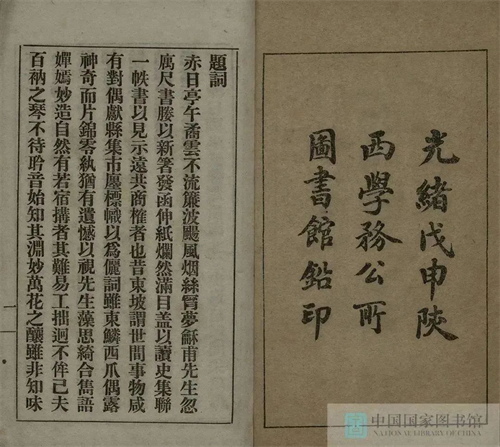 光緒戊申陝
西學務公所
圖書館鉛印
題詞
赤日亭午矞雲不流簾波颺風烟絲罥夢穌甫先生忽
厲尺書媵以新箸發函伸紙爛然滿目蓋以讀史集聯
一帙書以見示遠共商榷者也昔東坡謂世間事物咸
有對偶獻縣集市廛標幟以爲儷詞雖東鱗西爪偶露
神奇而片錦零紈猶有遺憾以視先生藻思綺合雋語
嬋嫣妙造自然有若宿搆者其難易工拙迥不侔已夫
百衲之琴不待聆音始知其淵妙萬花之釀雖非知味
一
中国国家图书馆
NATIONAL LIBRARY OF CHINA